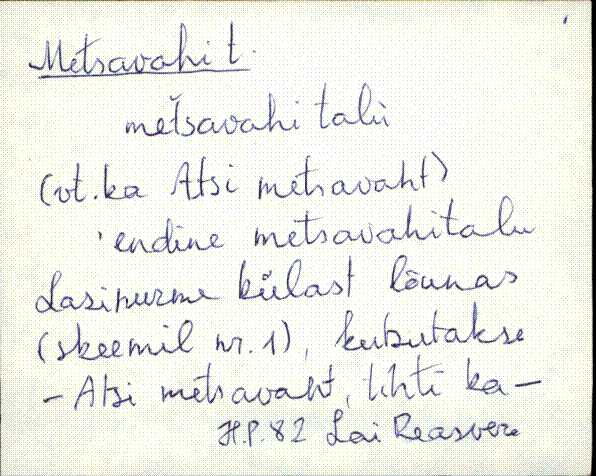 Metsavahi t.
metsavahi talu
(vt. ka Atsi metsavaht)
endine metsavahitalu
Lasinurme külast lõunas
(skeemil nr. 1), kutsutakse
- Atsi metsavaht, tihti ka -
H.P. 82 Lai Reasvere